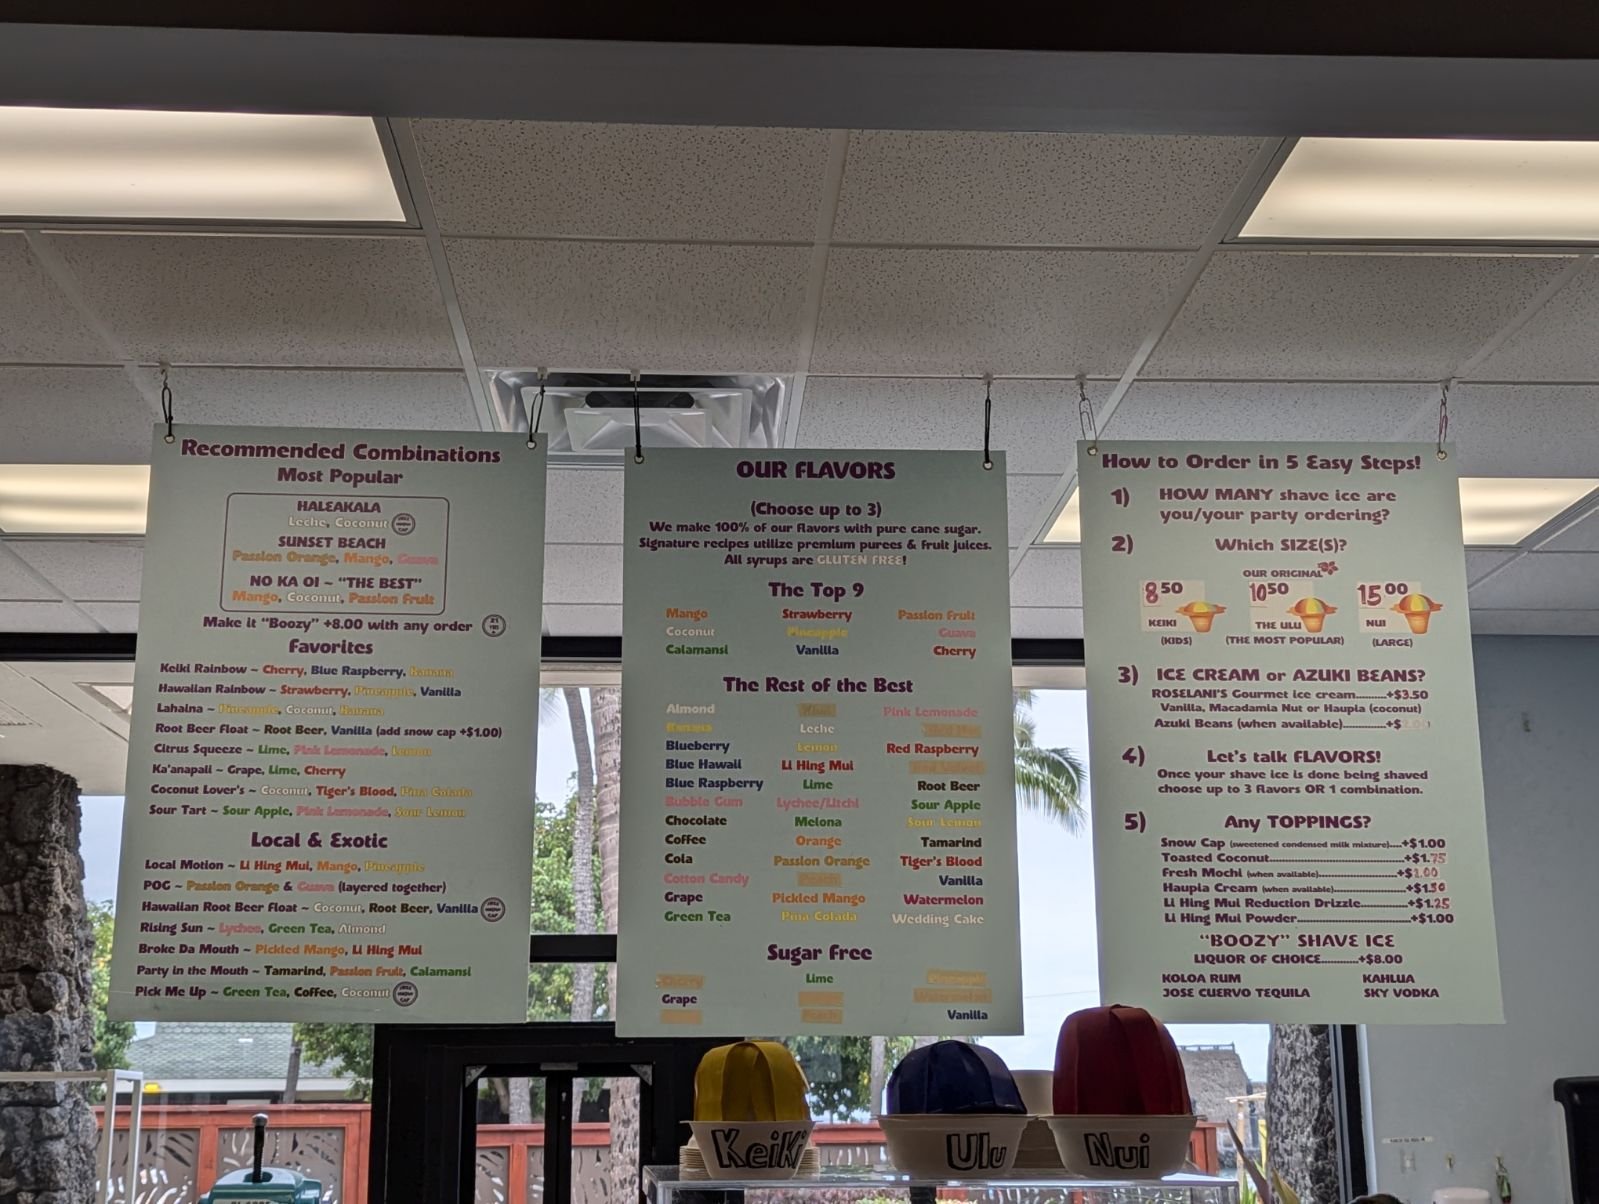 Recommended Combinations
Most Popular
HALEAKALA
Leche, Coconut
SUNSET BEACH
Passion Orange, Mango, Guava
NO KA OI ~ "THE BEST"
Mango, Coconut, Passion Fruit
Make it "Boozy" +8.00 with any order
Favorites
Keiki Rainbow ~ Cherry, Blue Raspberry, Banana
Hawaiian Rainbow ~ Strawberry, Pineapple, Vanilla
Lahaina ~ Pineapple, Coconut, Banana
Root Beer Float ~ Root Beer, Vanilla (add snow cap +$1.00)
Citrus Squeeze ~ Lime, Pink Lemonade, Lemon
Ka'anapali ~ Grape, Lime, Cherry
Coconut Lover's ~ Coconut, Tiger's Blood, Pina Colada
Sour Tart ~ Sour Apple, Pink Lemonade, Sour Lemon
Local & Exotic
Local Motion ~ Li Hing Mui, Mango, Pineapple
POG ~ Passion Orange & Guava (layered together)
Hawaiian Root Beer Float ~ Coconut, Root Beer, Vanilla
Rising Sun ~ Lychee, Green Tea, Almond
Broke Da Mouth ~ Pickled Mango, Li Hing Mui
Party in the Mouth ~ Tamarind, Passion Fruit, Calamansi
Pick Me Up ~ Green Tea, Coffee, Coconut
OUR FLAVORS
(Choose up to 3)
We make 100% of our flavors with pure cane sugar.
Signature recipes utilize premium purees & fruit juices.
All syrups are GLUTEN FREE!
The Top 9
Mango Strawberry Passion Fruit
Coconut Pineapple Guava
Calamansi Vanilla Cherry
The Rest of the Best
Almond Pink Lemonade
Banana Leche
Blueberry Lemon Red Raspberry
Blue Hawaii Li Hing Mui Red Velvet
Blue Raspberry Lime Root Beer
Bubble Gum Lychee/Litchi Sour Apple
Chocolate Melona Sour Lemon
Coffee Orange Tamarind
Cola Passion Orange Tiger's Blood
Cotton Candy Peach Vanilla
Grape Pickled Mango Watermelon
Green Tea Pina Colada Wedding Cake
Sugar Free
Cherry Lime Pineapple
Grape Watermelon
Peach Vanilla
How to Order in 5 Easy Steps!
1) HOW MANY shave ice are
you/your party ordering?
2) Which SIZE(S)?
OUR ORIGINAL
8.50 10.50 15.00
KEIKI THE ULU NUI
(KIDS) (THE MOST POPULAR) (LARGE)
3) ICE CREAM or AZUKI BEANS?
ROSELANI'S Gourmet ice cream.........+$3.50
Vanilla, Macadamia Nut or Haupia (coconut)
Azuki Beans (when available)..............+$
4) Let's talk FLAVORS!
Once your shave ice is done being shaved
choose up to 3 flavors OR 1 combination.
5) Any TOPPINGS?
Snow Cap (sweetened condensed milk mixture)....+$1.00
Toasted Coconut................................+$1.75
Fresh Mochi (when available)...................+$2.00
Haupia Cream (when available)..................+$1.50
Li Hing Mui Reduction Drizzle..............+$1.25
Li Hing Mui Powder............................+$1.00
"BOOZY" SHAVE ICE
LIQUOR OF CHOICE............+$8.00
KOLOA RUM KAHLUA
JOSE CUERVO TEQUILA SKY VODKA
KeiKi Ulu Nui